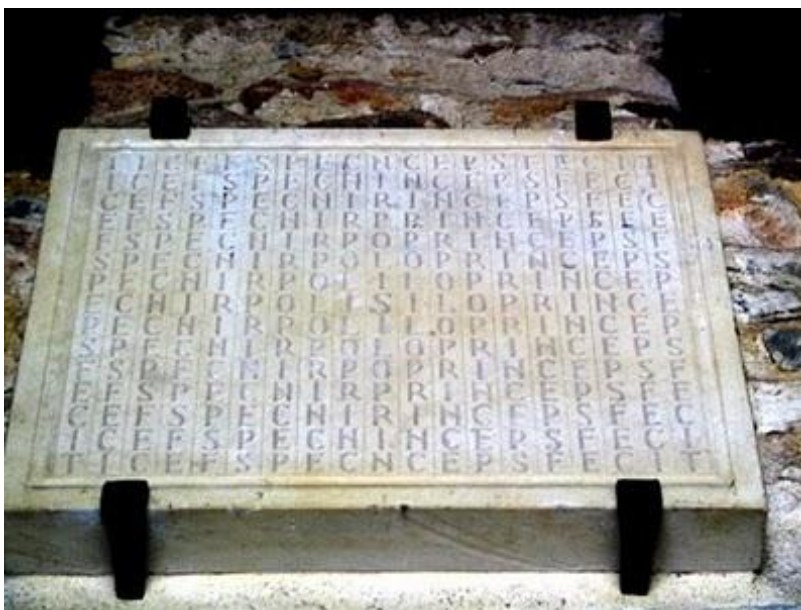 T I C E F S P E C N C E P S F E C I T
I C E F S P E C N I N C E P S F E C I
C E F S P E C N I R I N C E P S F E C
E F S P E C N I R P R I N C E P S F E
F S P E C N I R P O P R I N C E P S F
S P E C N I R P O L O P R I N C E P S
P E C N I R P O L I L O P R I N C E P
E C N I R P O L I S I L O P R I N C E
P E C N I R P O L I L O P R I N C E P
S P E C N I R P O L O P R I N C E P S
F S P E C N I R P O P R I N C E P S F
E F S P E C N I R P R I N C E P S F E
C E F S P E C N I R I N C E P S F E C
I C E F S P E C N I N C E P S F E C I
T I C E F S P E C N C E P S F E C I T